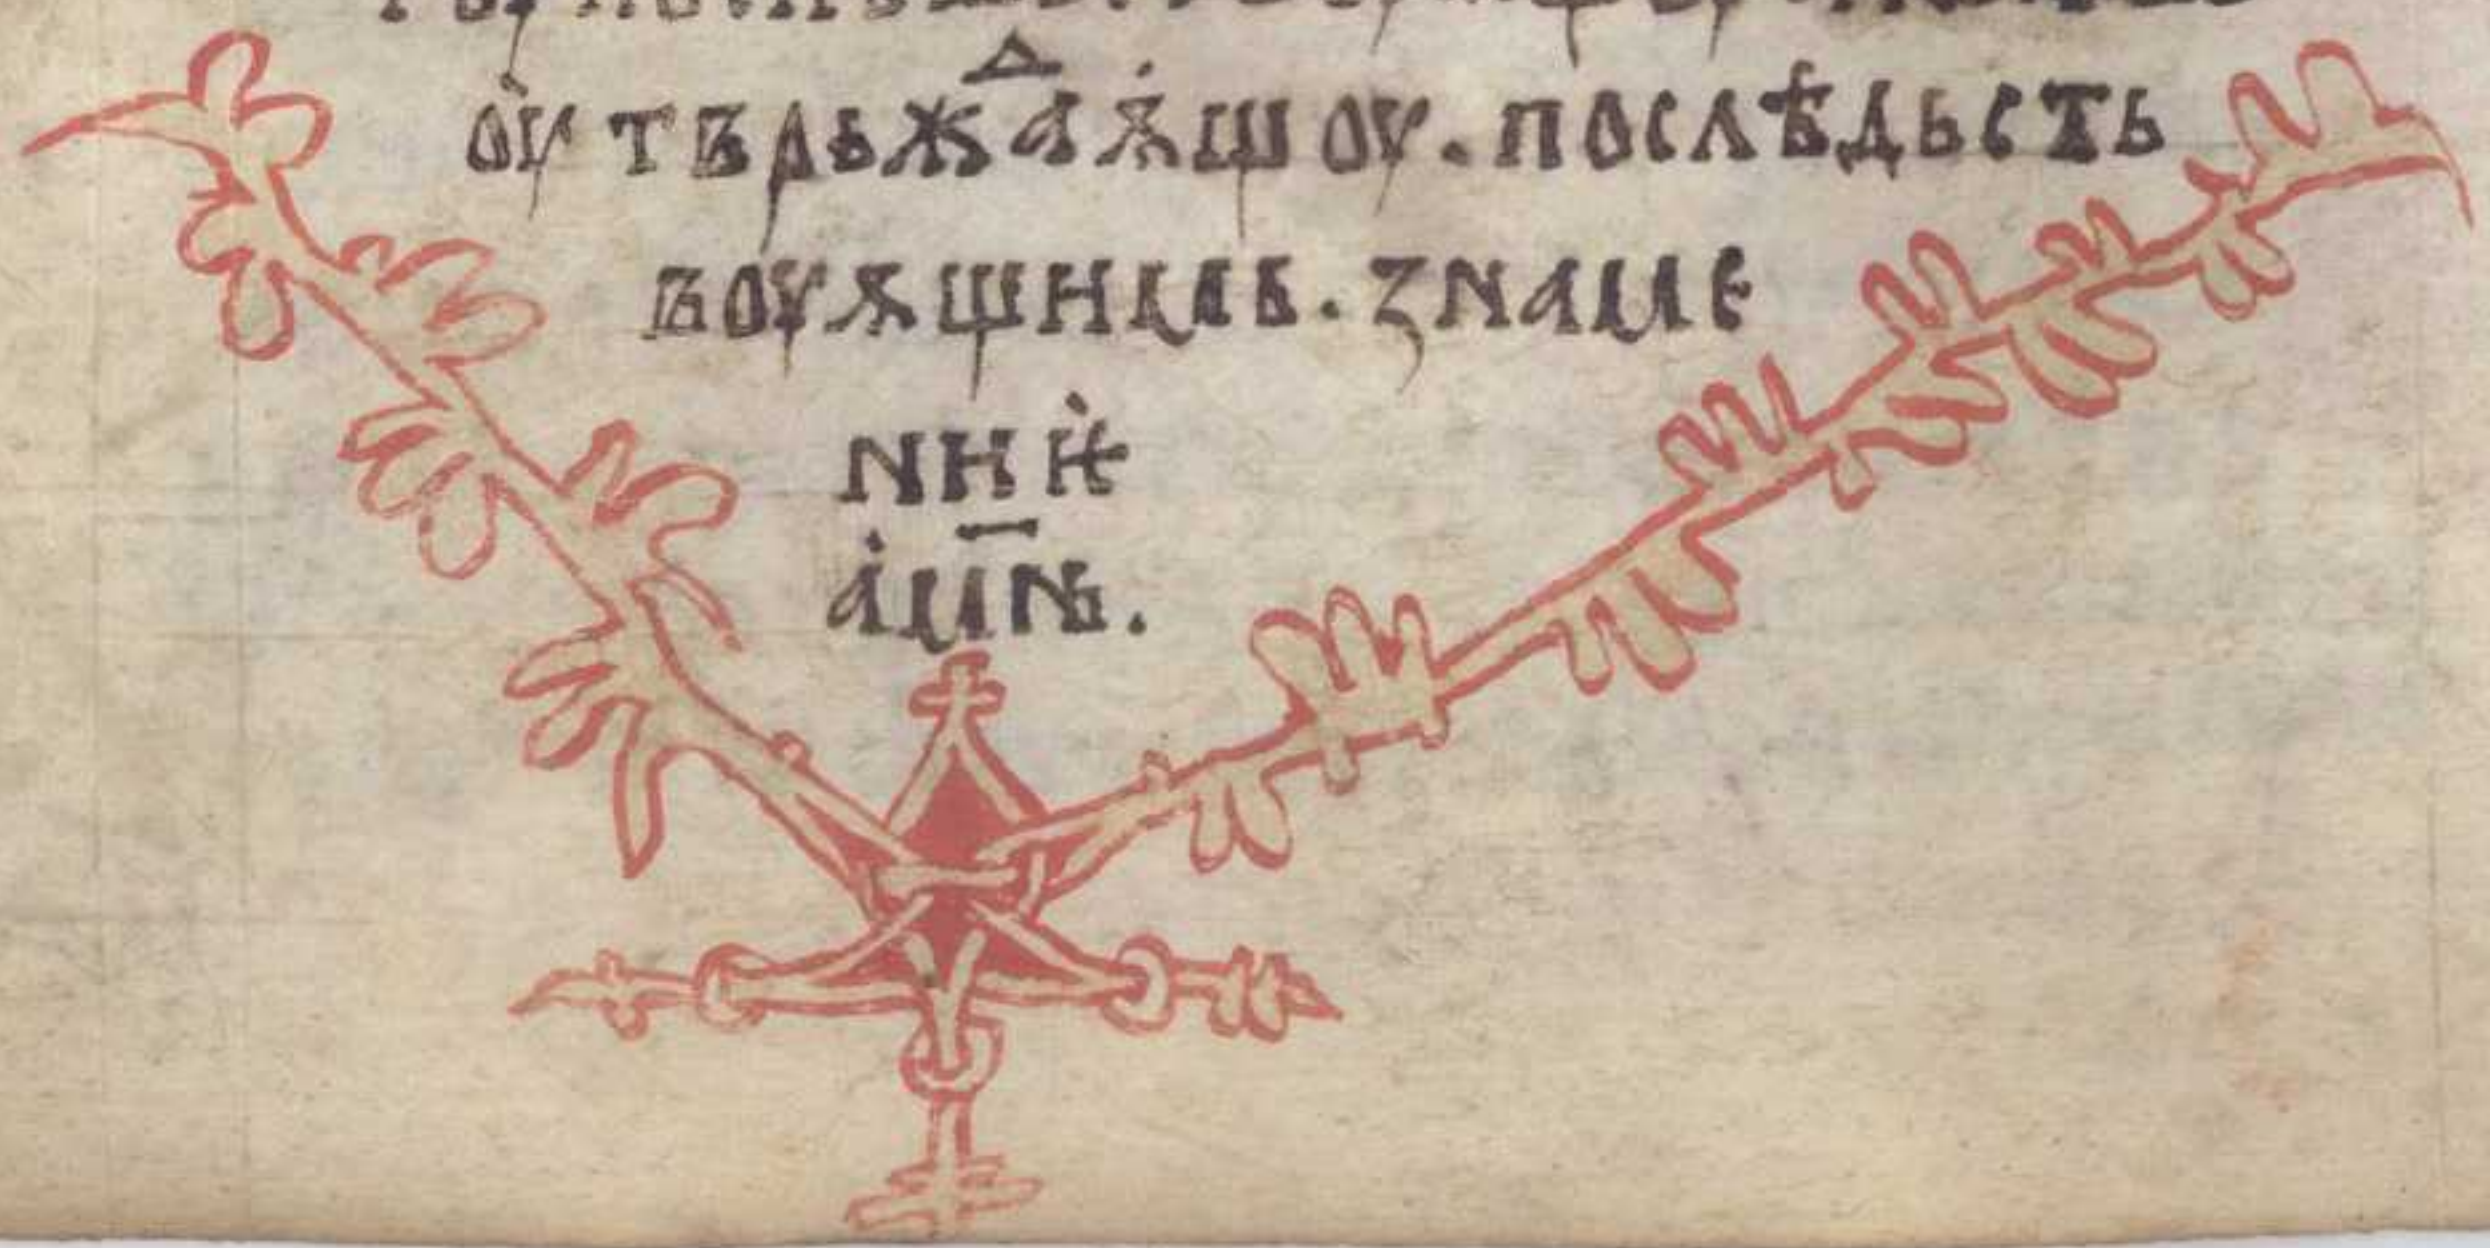 оу҆тврьжⷣаѫ҆щоу. послѣдьсть
воуѫщиимь. знаме
нии҆
а҆ми҃нь.